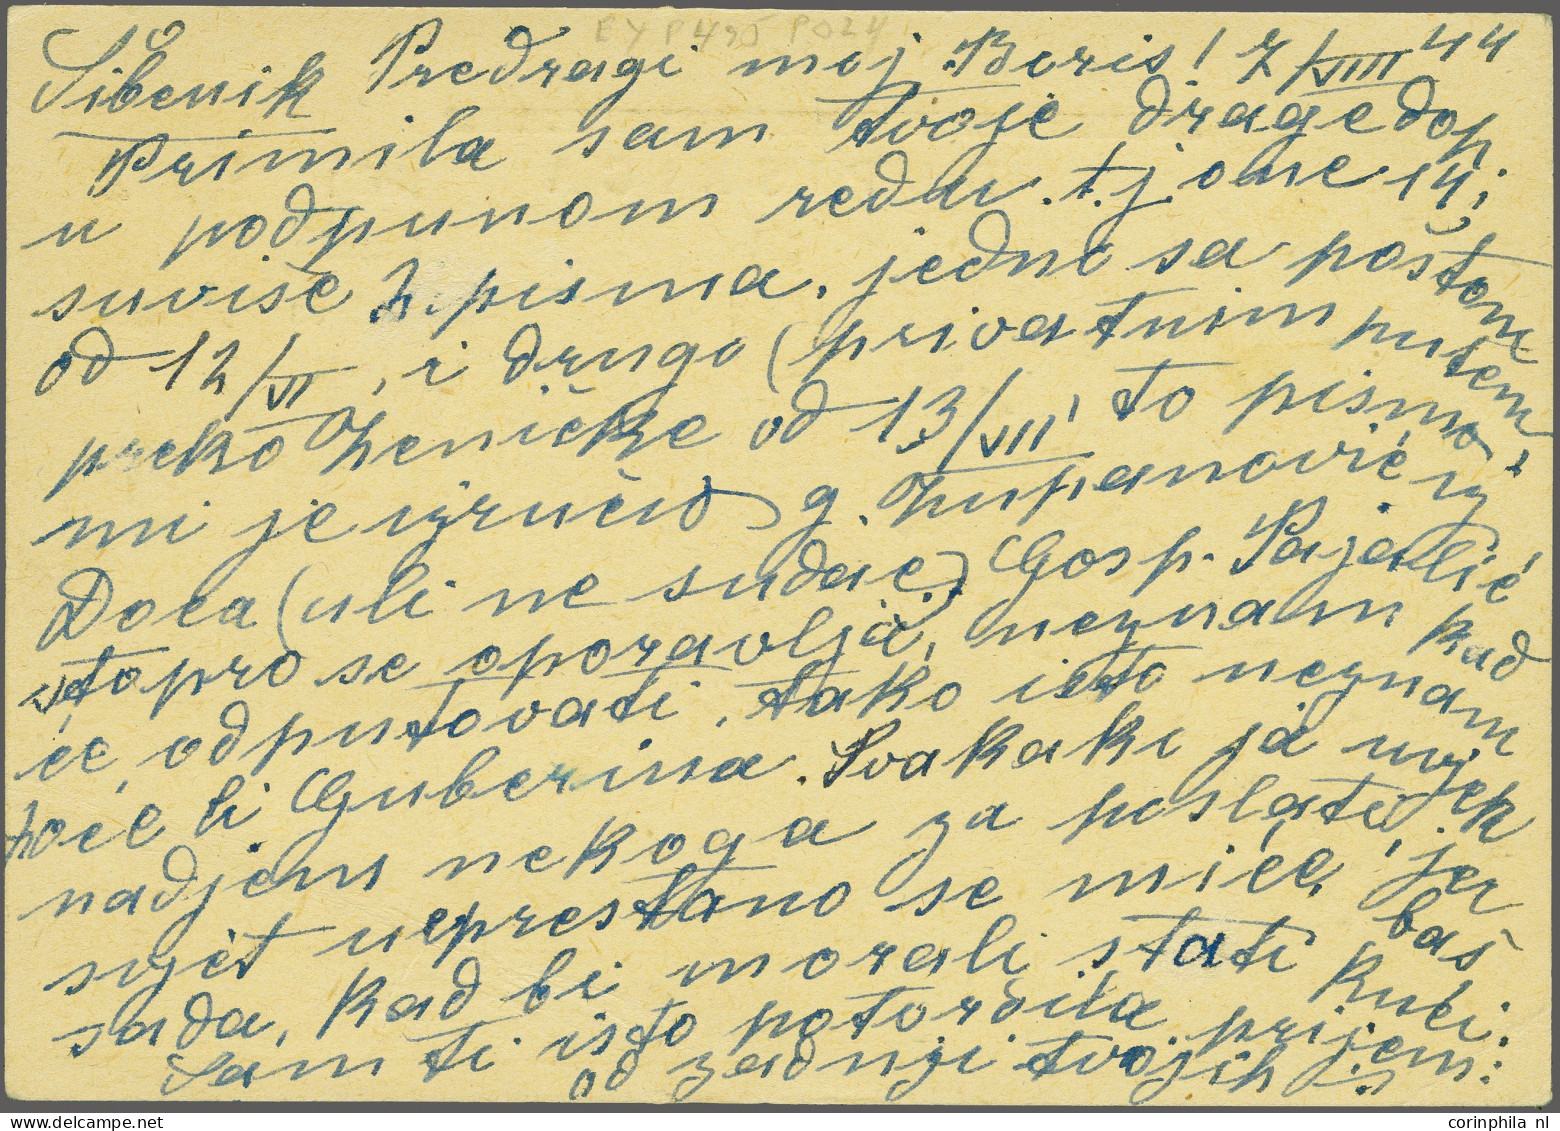 EYP495 P024
Šibenik Predragi moj Boris! 7/VIII 44
Primila sam tvoje drage dop
u podpunom redu. t.j. one 14,
suviše 2 pisma, jedno sa poštom
od 12/VI, i drugo (privatnim putem
preko Ženičke od 13/VII to pismo
mi je izručio g. Županović iz
Doca (uli ne sudac) Gosp. Pajalić
istopro se oporavlja, neznam kad
će odputovati, tako isto neznam
hoće li Guberina. Svakako ja uvjek
nadjem nekoga za poslati, jer
svjet neprestano se miče, baš
sada, kad bi morali stati kući.
Sam ti isto potvrdila prijem:
od zadnji tvojih
corinphila nl